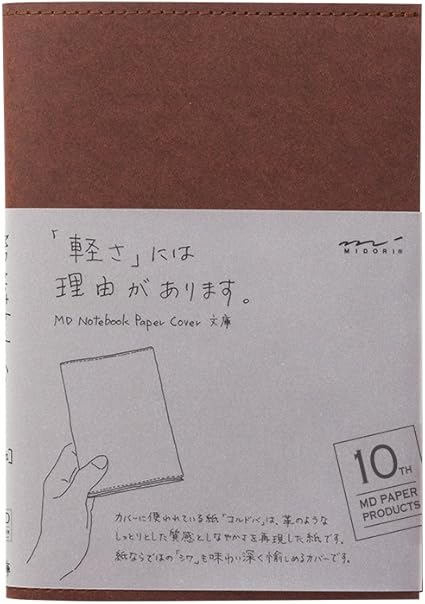 「軽さ」には
理由があります。
MD Notebook Paper Cover 文庫
MIDORI®
10TH
MD PAPER
PRODUCTS
カバーに使われている紙「コルドバ」は、革のような
しっとりとした質感としなやかさを再現した紙です。
紙ならではの「シワ」も味わい深く愉しめるカバーです。